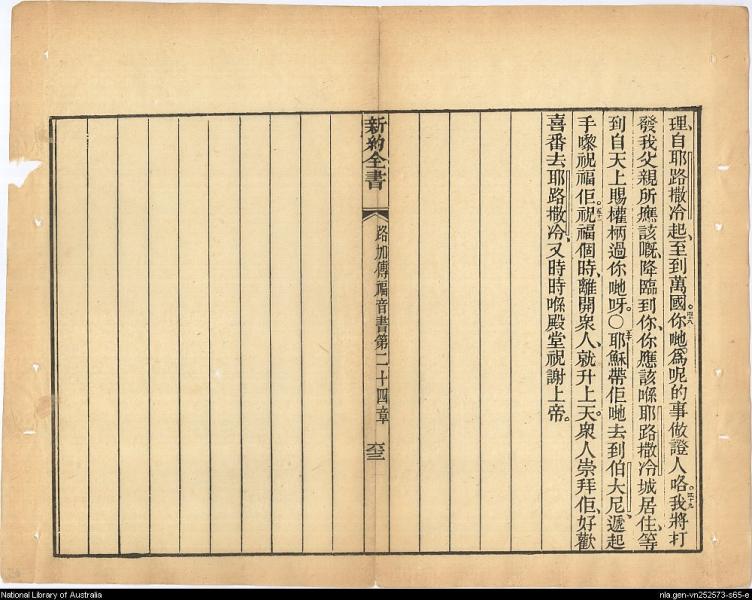 理、自耶路撒冷起、至到萬國。四八你哋爲呢的事做證人咯。四十九我將打
發我父親所應該嘅、降臨到你、你應該喺耶路撒冷城居住、等
到自天上賜權柄過你哋呀。〇五十耶穌帶佢哋去到伯大尼、遞起
手嚟祝福佢。五一祝福個時、離開衆人、就升上天。衆人崇拜佢、好歡
喜番去耶路撒冷、又時時喺殿堂祝謝上帝。
新約全書
路加傳福音書第二十四章
六三
National Library of Australia
nla.gen-vn252573-s65-e